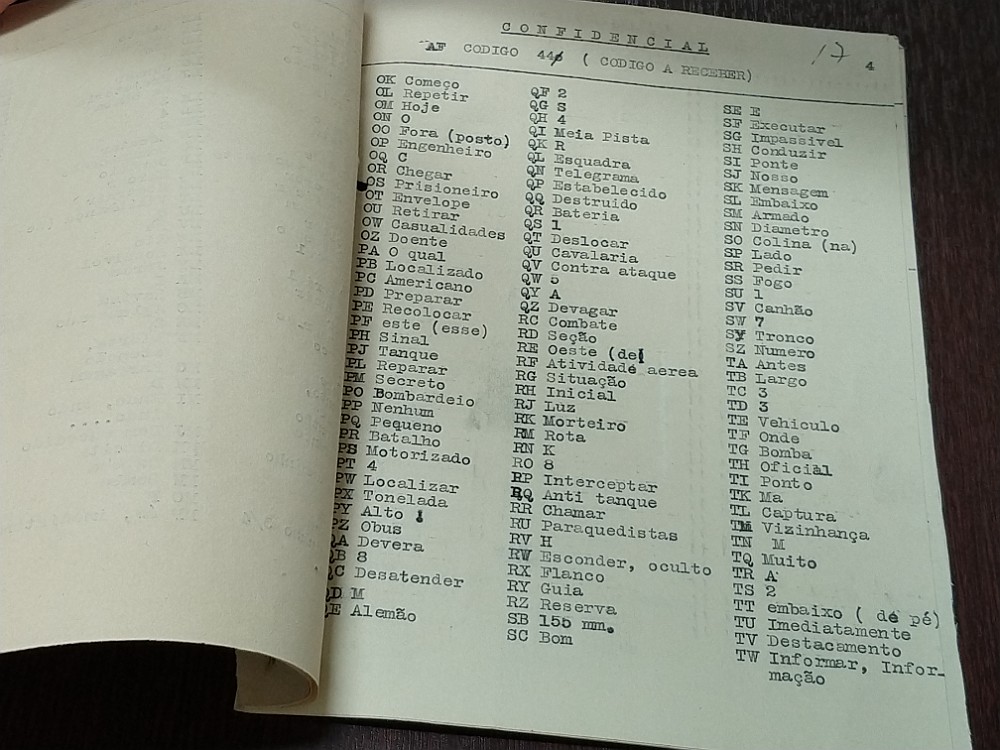 CONFIDENCIAL
AF CODIGO 446 ( CODIGO A RECEBER)
17 4
OK Começo
OL Repetir
OM Hoje
ON O
OO Fora (posto)
OP Engenheiro
OQ C
OR Chegar
OS Prisioneiro
OT Envelope
OU Retirar
OW Casualidades
OZ Doente
PA O qual
PB Localizado
PC Americano
PD Preparar
PE Recolocar
PF este (esse)
PH Sinal
PJ Tanque
PL Reparar
PM Secreto
PO Bombardeio
PP Nenhum
PQ Pequeno
PR Batalho
PS Motorizado
PT 4
PW Localizar
PX Tonelada
PY Alto
PZ Obus
QA Devera
QB 8
QC Desatender
QD M
QE Alemão
QF 2
QG S
QH 4
QI Meia Pista
QK R
QL Esquadra
QN Telegrama
QP Estabelecido
QQ Destruido
QR Bateria
QS 1
QT Deslocar
QU Cavalaria
QV Contra ataque
QW 5
QY A
QZ Devagar
RC Combate
RD Seção
RE Oeste (de)
RF Atividade aerea
RG Situação
RH Inicial
RJ Luz
RK Morteiro
RM Rota
RN K
RO 8
RP Interceptar
RQ Anti tanque
RR Chamar
RU Paraquedistas
RV H
RW Esconder, oculto
RX Flanco
RY Guia
RZ Reserva
SB 155 mm.
SC Bom
SE E
SF Executar
SG Impassivel
SH Conduzir
SI Ponte
SJ Nosso
SK Mensagem
SL Embaixo
SM Armado
SN Diametro
SO Colina (na)
SP Lado
SR Pedir
SS Fogo
SU 1
SV Canhão
SW 7
SY Tronco
SZ Numero
TA Antes
TB Largo
TC 3
TD 3
TE Vehiculo
TF Onde
TG Bomba
TH Oficial
TI Ponto
TK Ma
TL Captura
TM Vizinhança
TN M
TQ Muito
TR A
TS 2
TT embaixo ( de pé)
TU Imediatamente
TV Destacamento
TW Informar, Infor-
mação